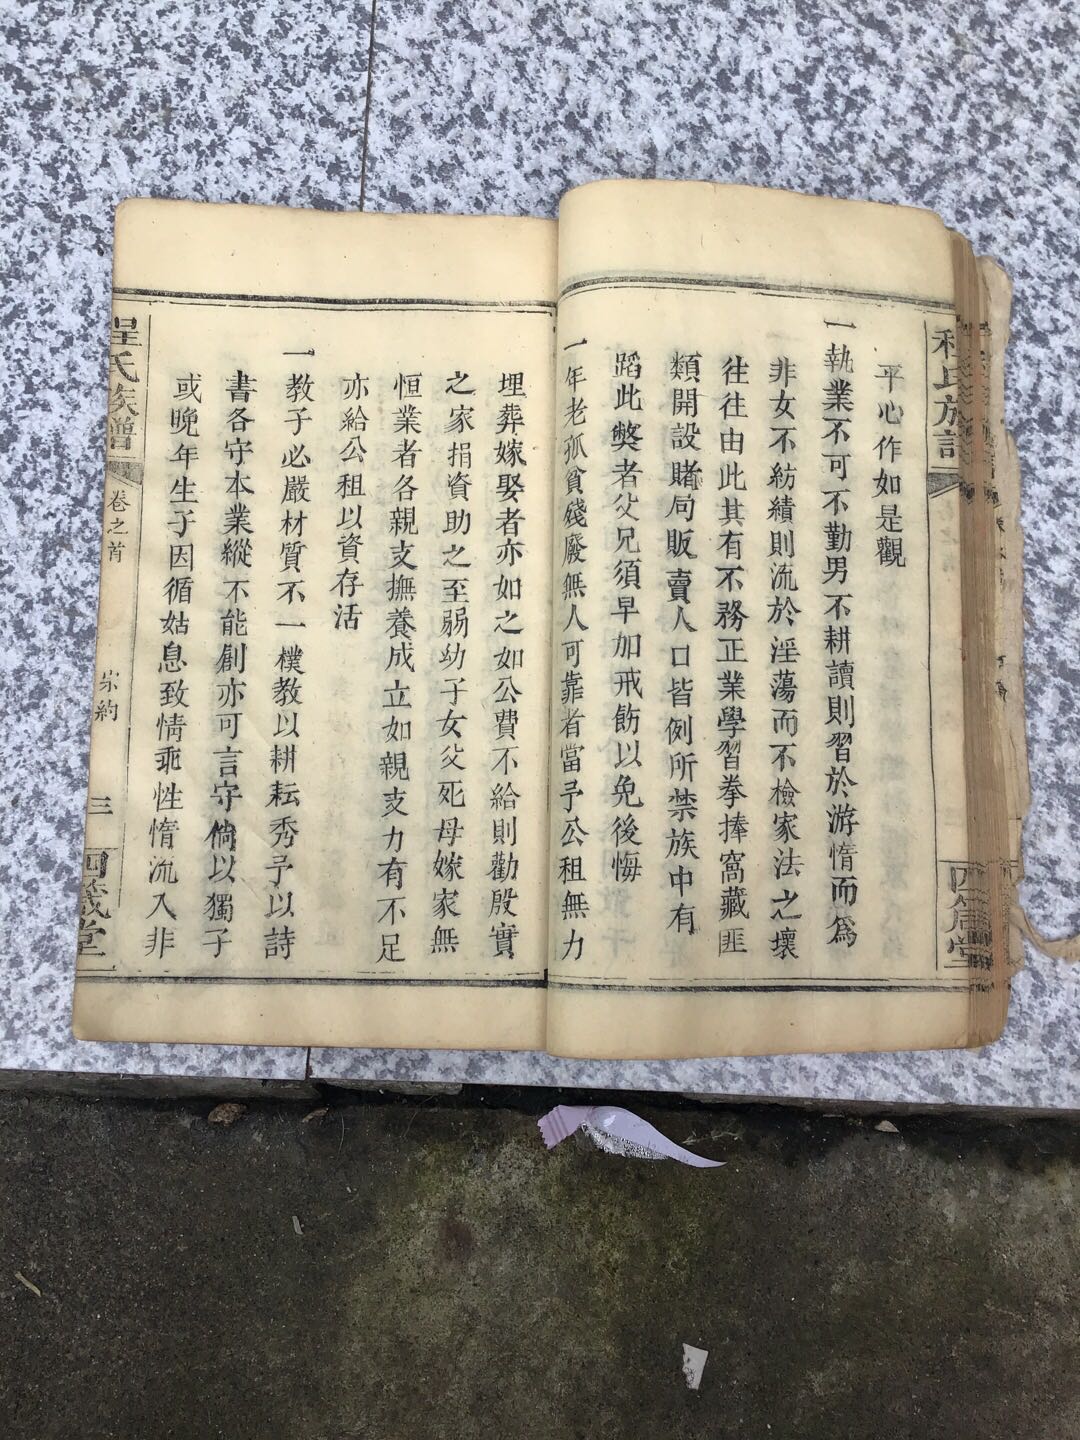 平心作如是觀
一執業不可不勤男不耕讀則習於游惰而爲
非女不紡績則流於淫蕩而不檢家法之壞
往往由此其有不務正業學習拳捧窩藏匪
類開設賭局販賣人口皆例所禁族中有
蹈此獘者父兄須早加戒飭以免後悔
一年老孤貧殘廢無人可靠者當予公租無力
埋葬嫁娶者亦如之如公費不給則勸殷實
之家捐資助之至弱幼子女父死母嫁家無
恒業者各親支撫養成立如親支力有不足
亦給公租以資存活
一教子必嚴材質不一樸教以耕耘秀予以詩
書各守本業縱不能創亦可言守倘以獨子
或晚年生子因循姑息致情乖性惰流入非
程氏族譜
卷之首
宗約
三
四箴堂